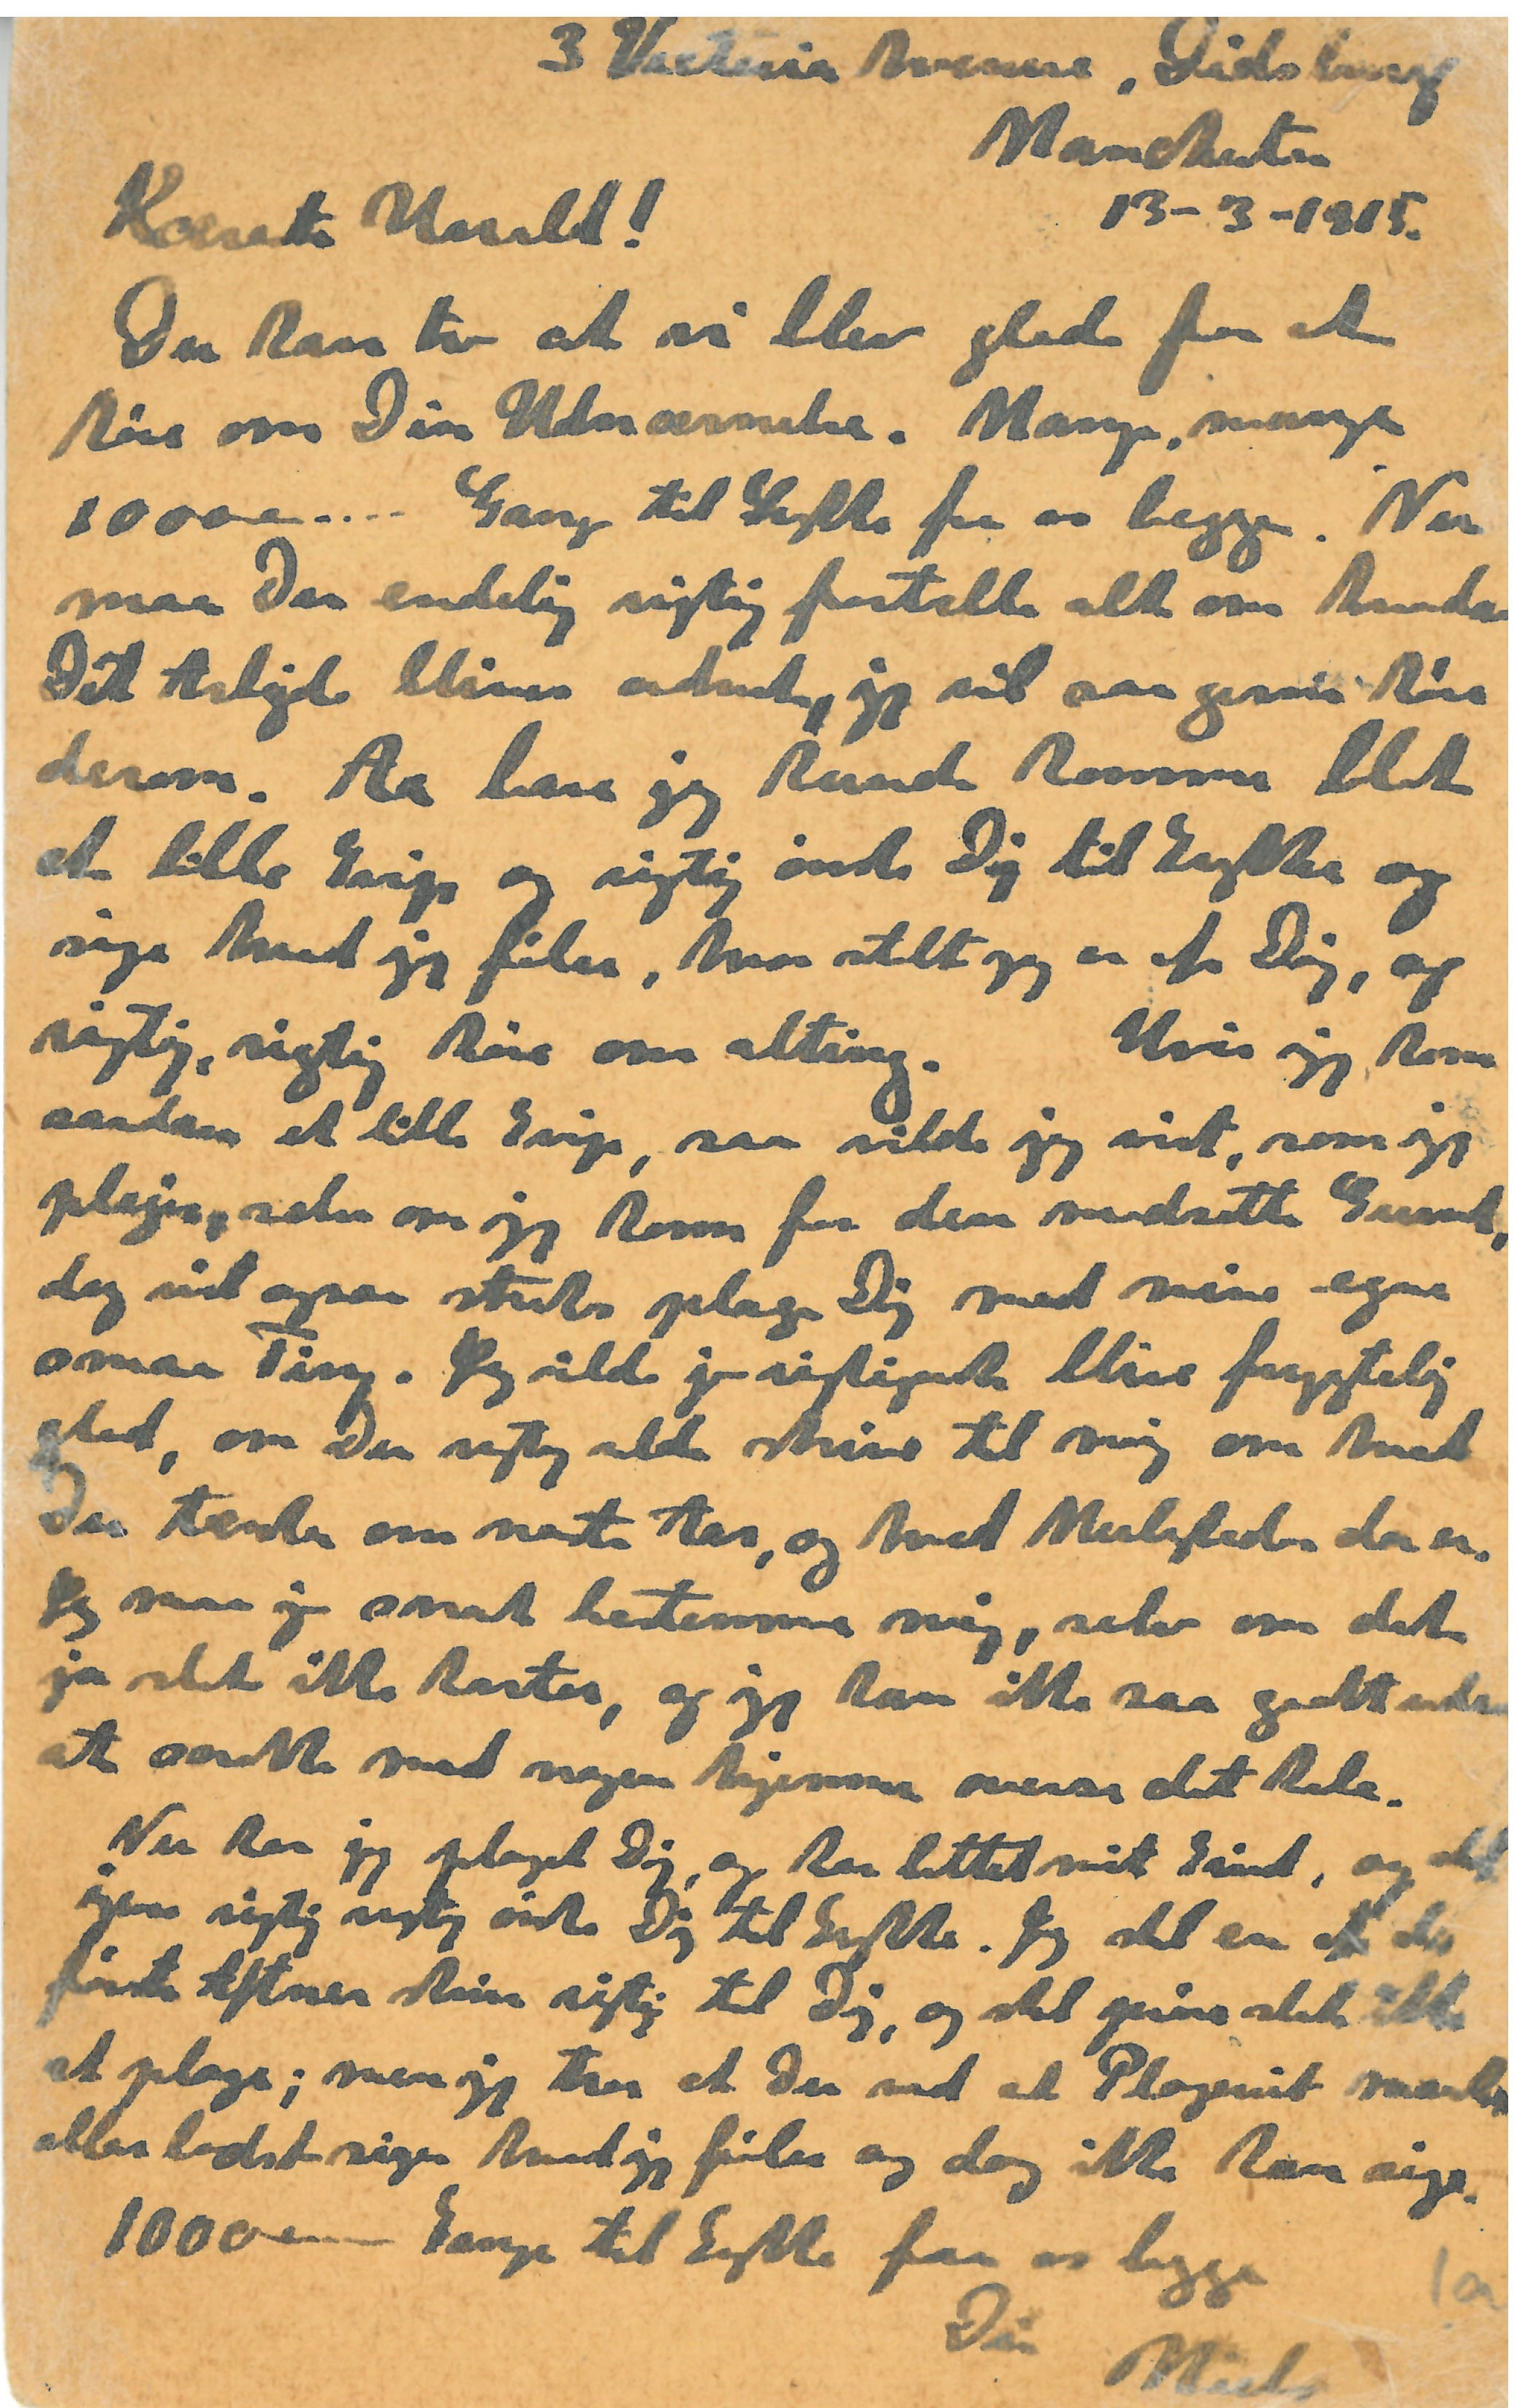 3 Victoria Avenue, Didsbury
Manchester
13-3-1915.
Kæreste Harald!
Du kan tro at vi blev glade for at
høre om Din Udnævnelse. Mange, mange
1000 .... Gange til Lykke fra os begge. Nu
maa Du endelig rigtig fortælle alt om hvordan
Dit Arbejde bliver ordnet, jeg vil saa gerne høre
derom. Aa bare jeg kunde komme blot
et lille Svip og rigtig ønske Dig til Lykke og
sige hvad jeg føler, hvor stolt jeg er af Dig, og
rigtig, rigtig høre om alting. Hvis jeg kom
saadan et lille Svip, saa vilde jeg vist, som jeg
plejer, selv om jeg kom for den modsatte Grund,
dog vist ogsaa straks plage Dig med mine egne
smaa Ting. Jeg vilde jo rigtignok blive frygtelig
glad, om Du rigtig vilde skrive til mig om hvad
Du tænker om næste Aar, og hvad Muligheder der er.
Jeg maa jo snart bestemme mig, selv om det
jo slet ikke haster, og jeg kan ikke saa godt uden
at snakke med nogen hjemme overse det hele.
Nu har jeg plaget Dig, og har lettet mit Sind, og skal
igen rigtig rigtig ønske Dig til Lykke. Jeg skal en af de
første Aftner skrive rigtig til Dig, og skal prøve slet ikke
at plage; men jeg tror at Du ved at Plageriet maaske
allerbedst siger hvad jeg føler og dog ikke kan sige.
1000 Gange til Lykke fra os begge
Din
Niels
1a